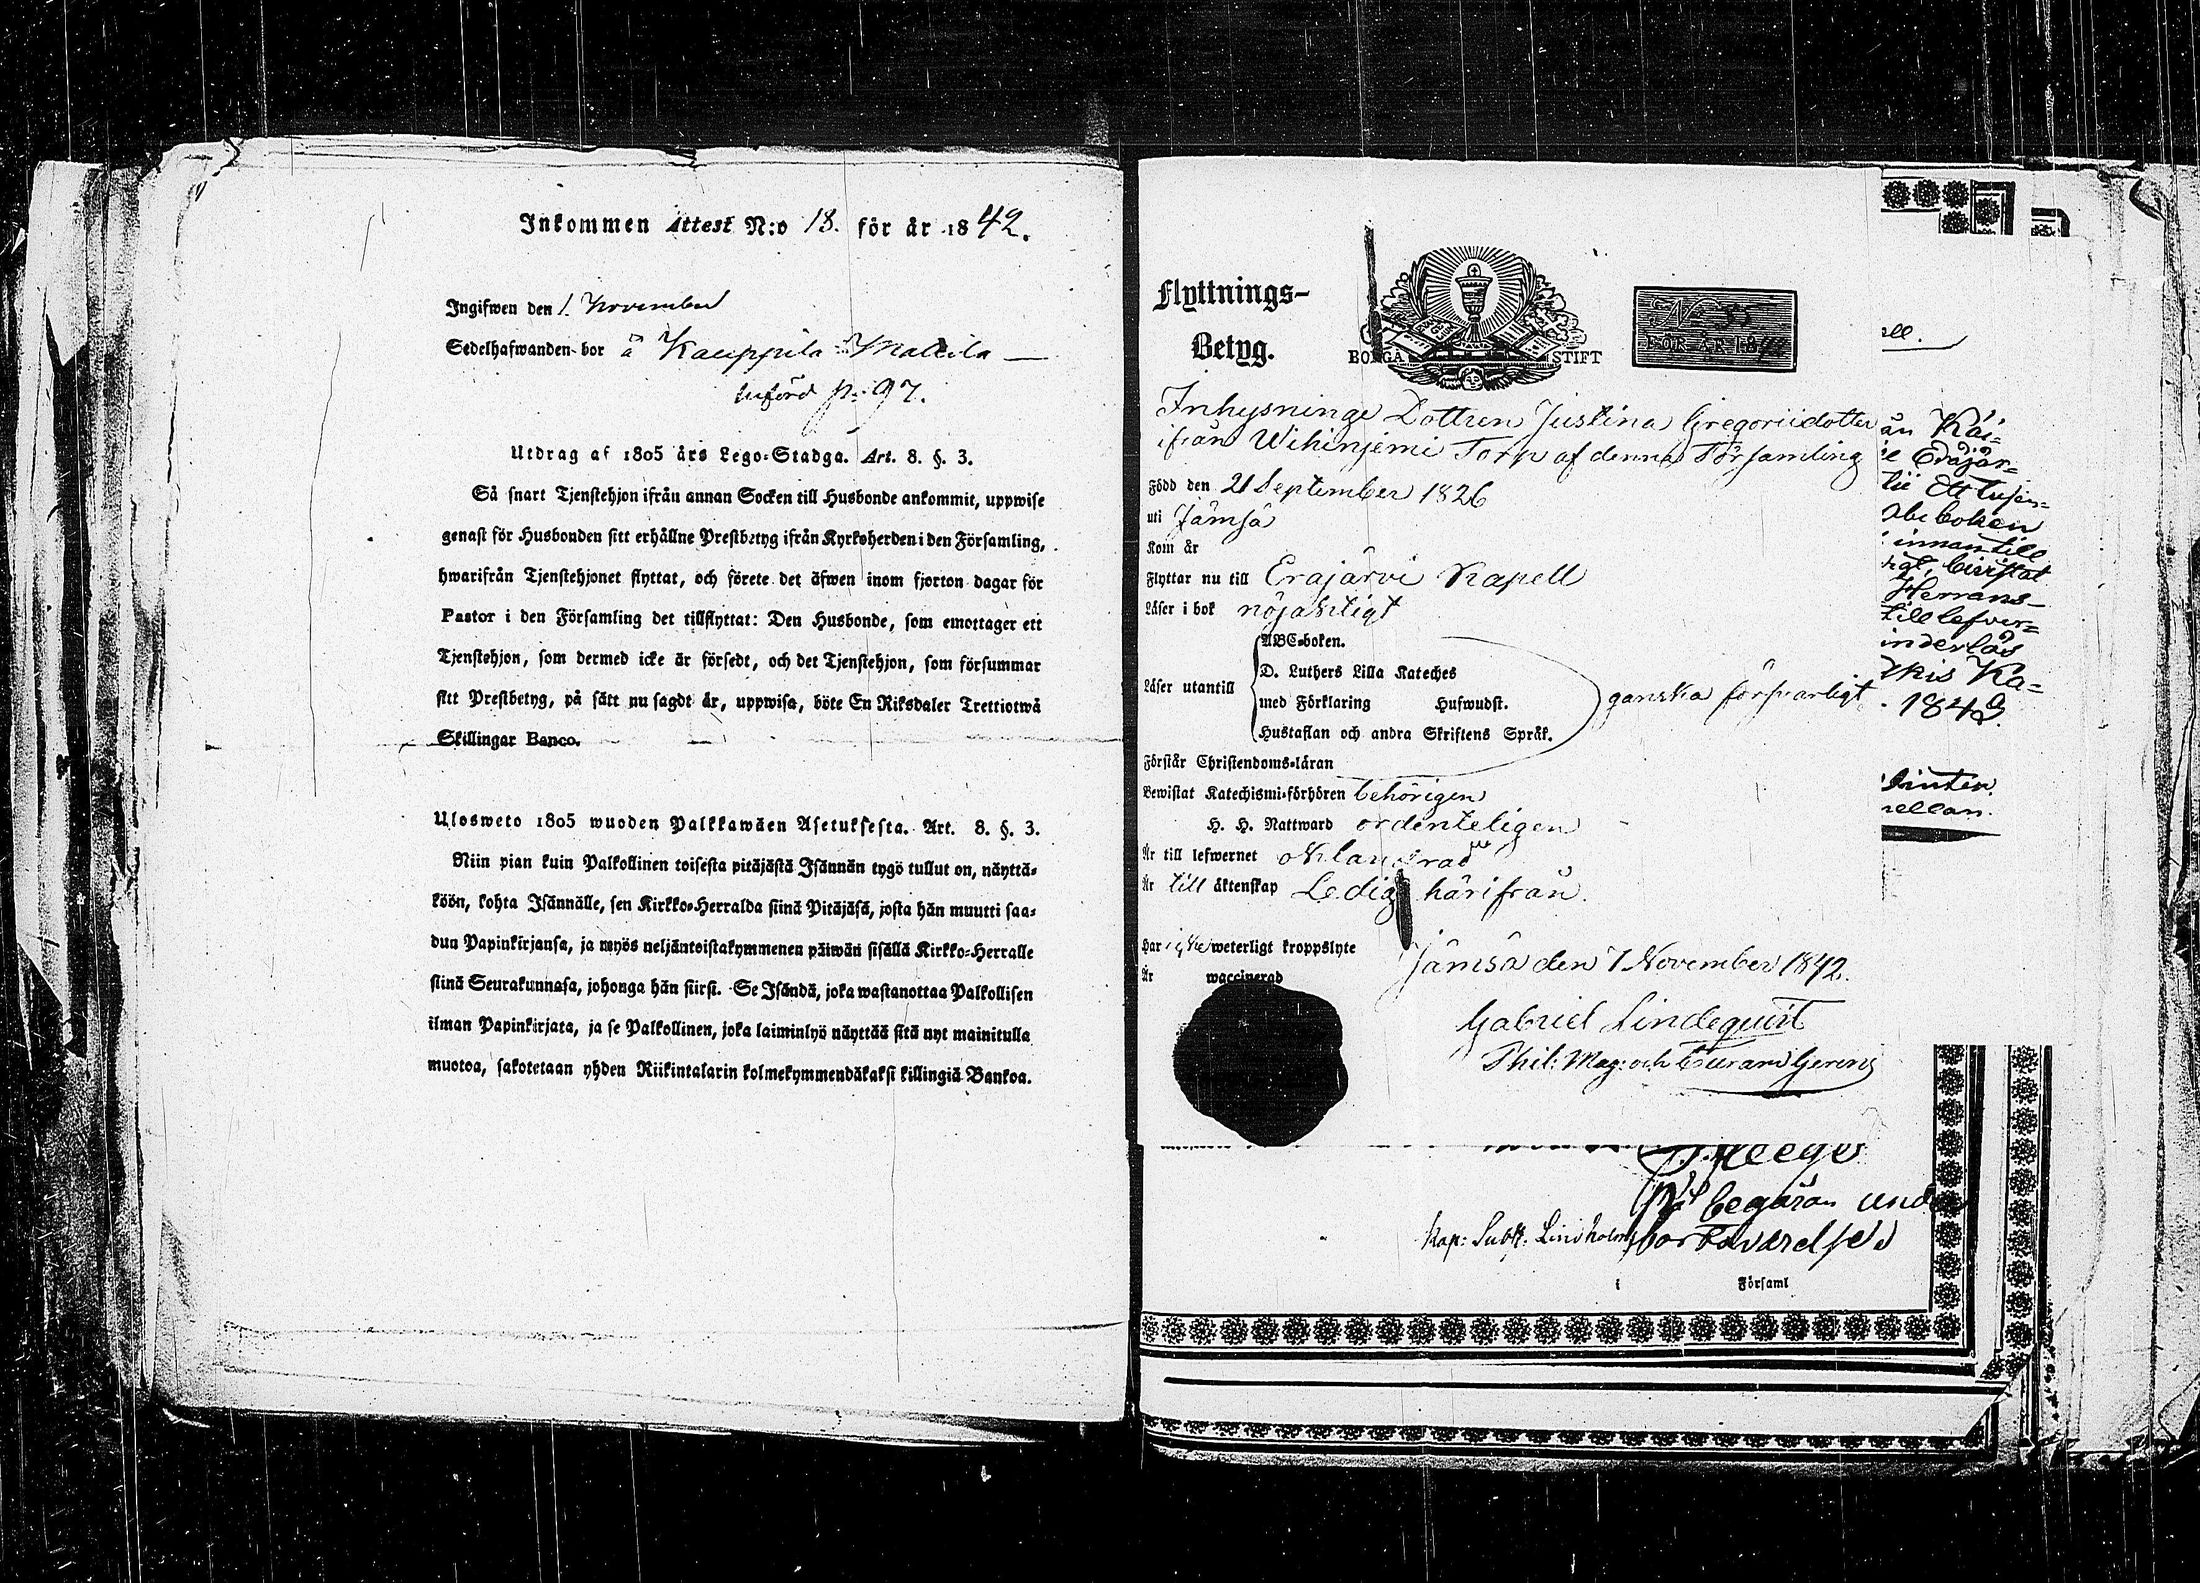 Inkommen Attest N:o 18. för år 1842.
Ingifwen den 1. November
Sedelhafwanden bor å Kauppila Mattila
Införd p. 97.
Utdrag af 1805 års Lego-Stadga. Art. 8. §. 3.
Så snart Tjenstehjon ifrån annan Socken till Husbonde ankommit, uppwise
genast för Husbonden sitt erhållne Prestbetyg ifrån Kyrkoherden i den Församling,
hwarifrån Tjenstehjonet flyttat, och förete det äfwen inom fjorton dagar för
Pastor i den Församling det tillflyttat: Den Husbonde, som emottager ett
Tjenstehjon, som dermed icke är försedt, och det Tjenstehjon, som försummar
sitt Prestbetyg, på sätt nu sagdt är, uppwisa, böte En Riksdaler Trettiotwå
Skillingar Banco.
Ulosweto 1805 wuoden Palkkawäen Asetuksesta. Art. 8. §. 3.
Niin pian kuin Palkollinen toisesta pitäjästä Isännän tygö tullut on, näyttä-
köön, kohta Isännälle, sen Kirkko-Herralda siinä Pitäjäsä, josta hän muutti saa-
dun Papinkirjansa, ja myös neljäntoistakymmenen päiwän sisällä Kirkko-Herralle
siinä Seurakunnasa, johonga hän siirsi. Se Isändä, joka wastanottaa Palkollisen
ilman Papinkirjata, ja se Palkollinen, joka laiminlyö näyttää sitä nyt mainitulla
muotoa, sakotetaan yhden Riikintalarin kolmekymmendäkaksi killingiä Bankoa.
Flyttnings-
Betyg.
BORGÅ STIFT
N
FÖR ÅR 1842
Inhysninge Dottren Justina Gregoriidotter
ifrån Wihinjemi Torp af denna Församling
Född den 21 September 1826
uti Jämsä
Kom år
Flyttar nu till Erajärvi Kapell
Läser i bok nöjaktigt
Läser utantill
ABC-boken.
D. Luthers Lilla Kateches
med Förklaring Hufwudst.
Hustaflan och andra Skriftens Språk.
ganska försvarligt
Förstår Christendoms-läran
Bewistat Katechismi-förhören behörigen
H. H. Nattward ordenteligen
Är till lefwernet oklandrad
Är till äktenskap Ledig härifrån.
Har icke weterligt kroppslyte
Är waccinerad
Jämsä den 7 November 1842.
Gabriel Lindequist
Phil: Mag: och
ell.
ån Kai=
Eräjär=
Ett tusen=
boken
innantill
bivistat
Herrans-
till lefver=
Ka=
1842
nellan.
begäran und
Kap: Lindholms
i Församl